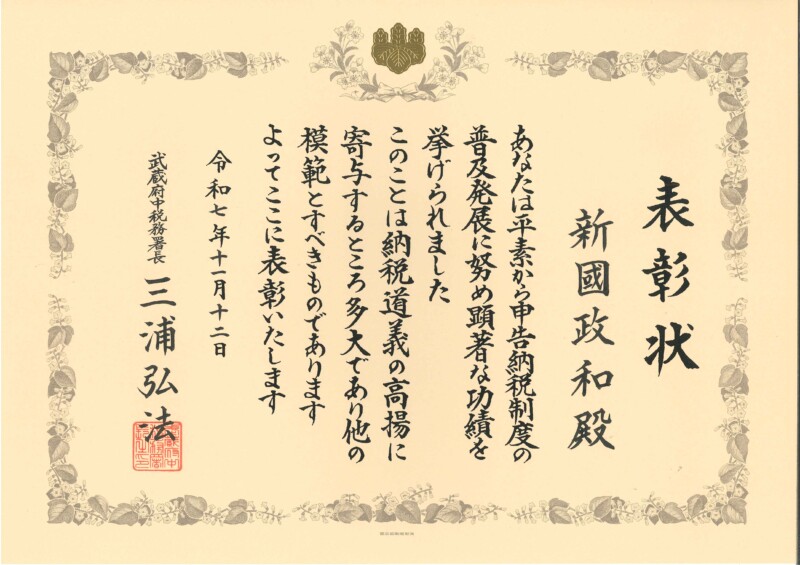 表彰状
新國政和殿
あなたは平素から申告納税制度の
普及発展に努め顕著な功績を
挙げられました
このことは納税道義の高揚に
寄与するところ多大であり他の
模範とすべきものであります
よってここに表彰いたします
令和七年十一月十二日
武蔵府中税務署長
三浦弘法